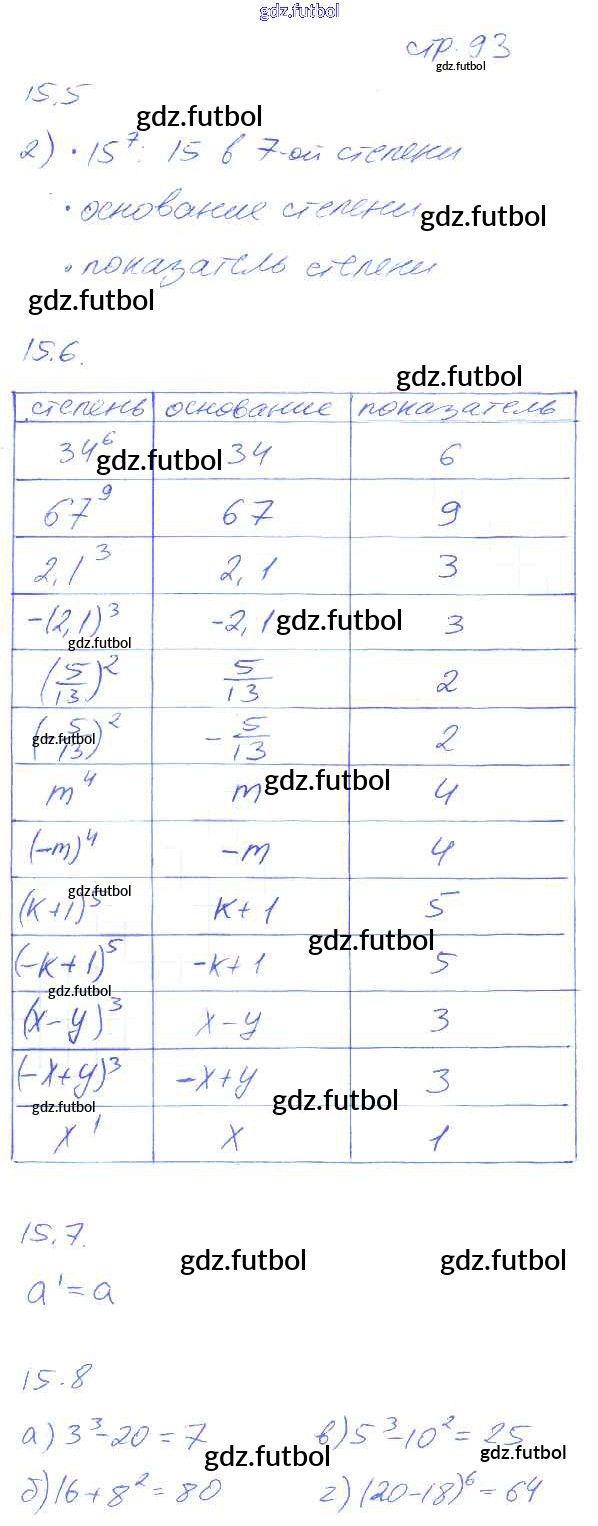 gdz.futbol
стр. 93
gdz.futbol
15.5
gdz.futbol
2) • 15⁷: 15 в 7-ой степени
• основание степени
gdz.futbol
• показатель степени
gdz.futbol
15.6.
gdz.futbol
степень основание показатель
34⁶ gdz.futbol 34 6
67⁹ 67 9
2,1³ 2,1 3
-(2,1)³ -2,1 gdz.futbol 3
gdz.futbol
(5/13)² 5/13 2
(-5/13)² -5/13 2
gdz.futbol
m⁴ m gdz.futbol 4
(-m)⁴ -m 4
gdz.futbol
(k+1)⁵ k+1 5
gdz.futbol
(-k+1)⁵ -k+1 5
gdz.futbol
(x-y)³ x-y 3
(-x+y)³ -x+y 3
gdz.futbol gdz.futbol
x¹ x 1
15.7.
gdz.futbol gdz.futbol
a¹ = a
15.8
а) 3³-20 = 7 в) 5³-10² = 25
gdz.futbol gdz.futbol
б) 16+8² = 80 г) (20-18)⁶ = 64